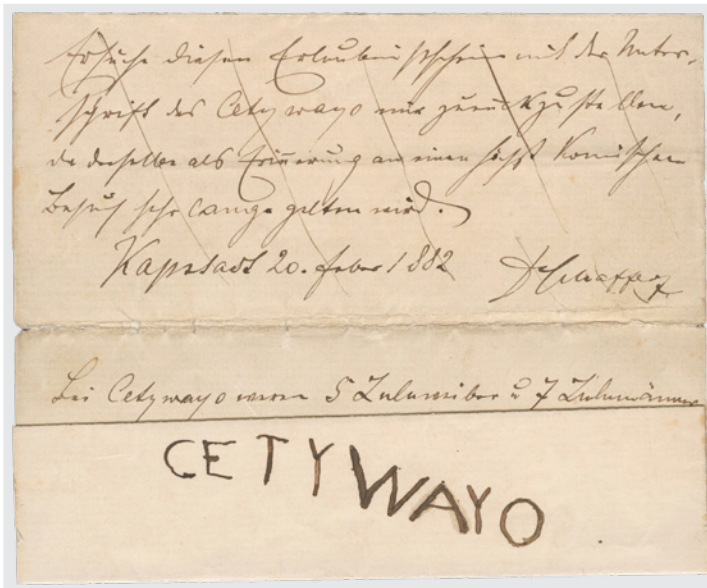 Ersuche diesen Erlaubnißschein mit der Unter-
schrift des Cetywayo mir zurückzustellen,
da derselbe als Erinnerung an einen höchst komischen
Besuch sehr lange gelten wird.
Kapstadt 20. Feber 1882
Bei Cetywayo waren 5 Zuluweiber u 7 Zulumänner
CETYWAYO